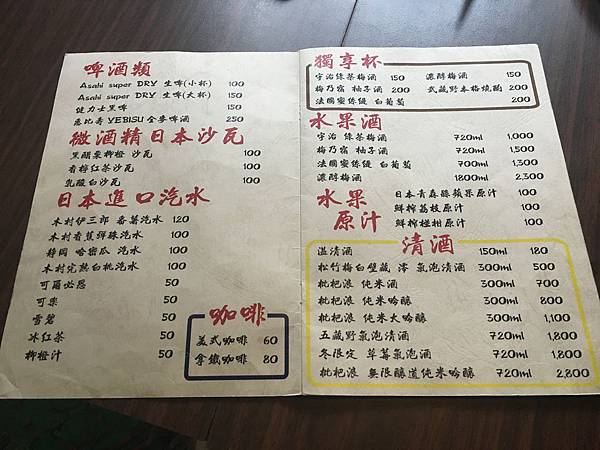 啤酒類
Asahi super DRY 生啤(小杯) 100
Asahi super DRY 生啤(大杯) 150
健力士黑啤 150
惠比壽 YEBISU 全麥啤酒 250
微酒精日本沙瓦
黑醋栗柳橙 沙瓦 100
香檸紅茶沙瓦 100
乳酸白沙瓦 100
日本進口汽水
木村伊三郎 番薯汽水 120
木村香蕉彈珠汽水 100
靜岡 哈密瓜 汽水 100
木村完熟白桃汽水 100
可爾必思 50
可樂 50
雪碧 50
冰紅茶 50
柳橙汁 50
咖啡
美式咖啡 60
拿鐵咖啡 80
獨享杯
宇治 綠茶梅酒 150 濃醇梅酒 150
梅乃宿 柚子酒 200 武藏野本格燒酎 200
法國蜜絲緹 白葡萄 200
水果酒
宇治 綠茶梅酒 720ml 1,000
梅乃宿 柚子酒 720ml 1,500
法國蜜絲緹 白葡萄 700ml 1,300
濃醇梅酒 1800ml 2,300
水果原汁
日本青森縣蘋果原汁 100
鮮榨荔枝原汁 100
鮮榨椪柑原汁 100
清酒
溫清酒 150ml 180
松竹梅白壁蔵 澪 氣泡清酒 300ml 500
枇杷浪 純米酒 300ml 700
枇杷浪 純米吟釀 300ml 800
枇杷浪 純米大吟釀 300ml 1,100
五蔵野氣泡清酒 720ml 1,800
冬限定 草莓氣泡酒 720ml 1,800
枇杷浪 無限釀造純米吟釀 720ml 2,800